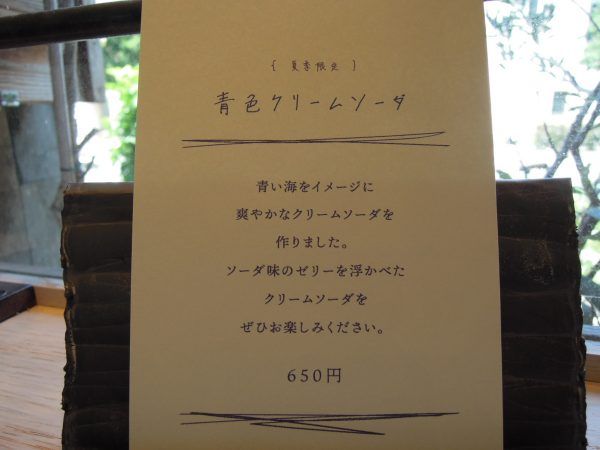 { 夏季限定 }
青色クリームソーダ
青い海をイメージに
爽やかなクリームソーダを
作りました。
ソーダ味のゼリーを浮かべた
クリームソーダを
ぜひお楽しみください。
650円